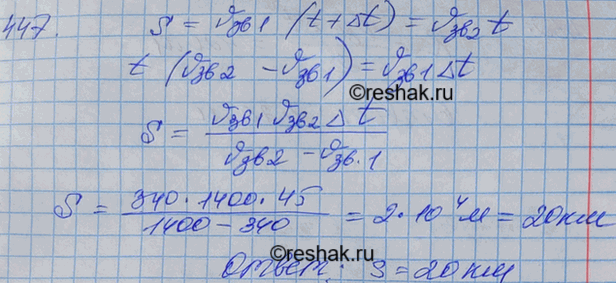 447. S = υзв1 (t + Δt) = υзв2 t
t (υзв2 − υзв1) = υзв1 Δt
©reshak.ru
S = υзв1 υзв2 Δt / υзв2 − υзв.1
S = 340 · 1400 · 45 / 1400 − 340 = 2 · 10⁴ м = 20 км
©reshak.ru
Ответ: S = 20 км